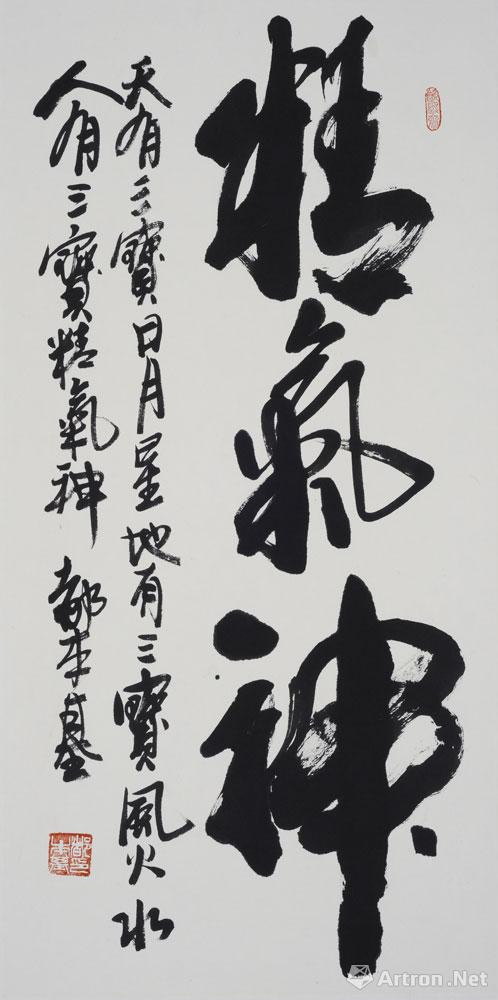 精氣神
天有三寳日月星地有三寳風火水
人有三寳精氣神 都本基
Artron.Net